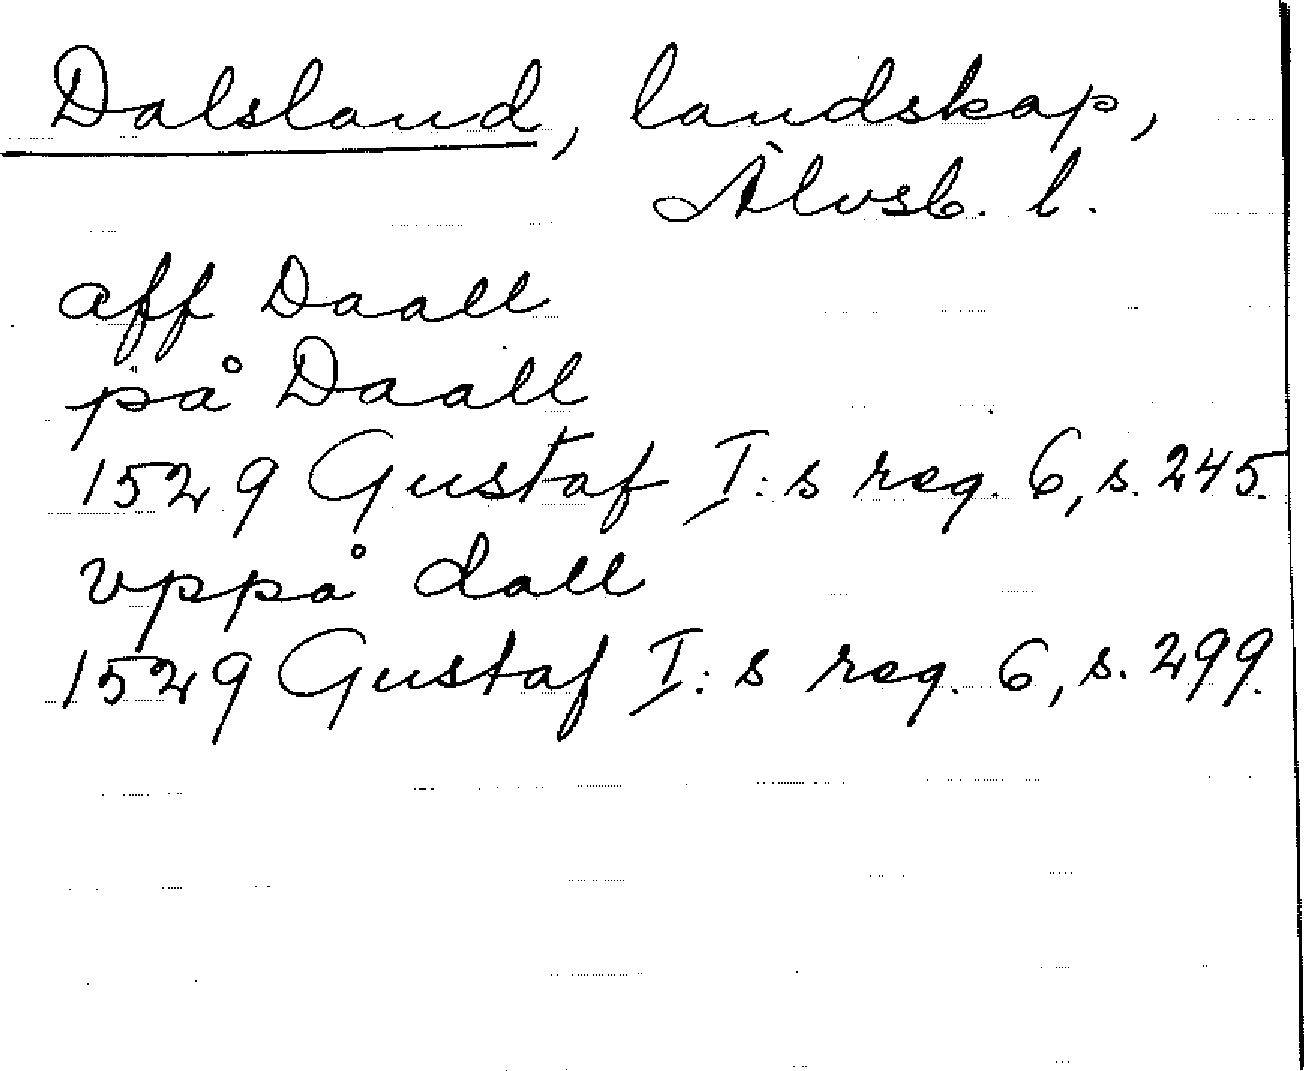 Dalsland, landskap,
Älvsb. l.
aff Daall
på Daall
1529 Gustaf I:s reg. 6, s. 245.
vppå dall
1529 Gustaf I:s reg. 6, s. 299.